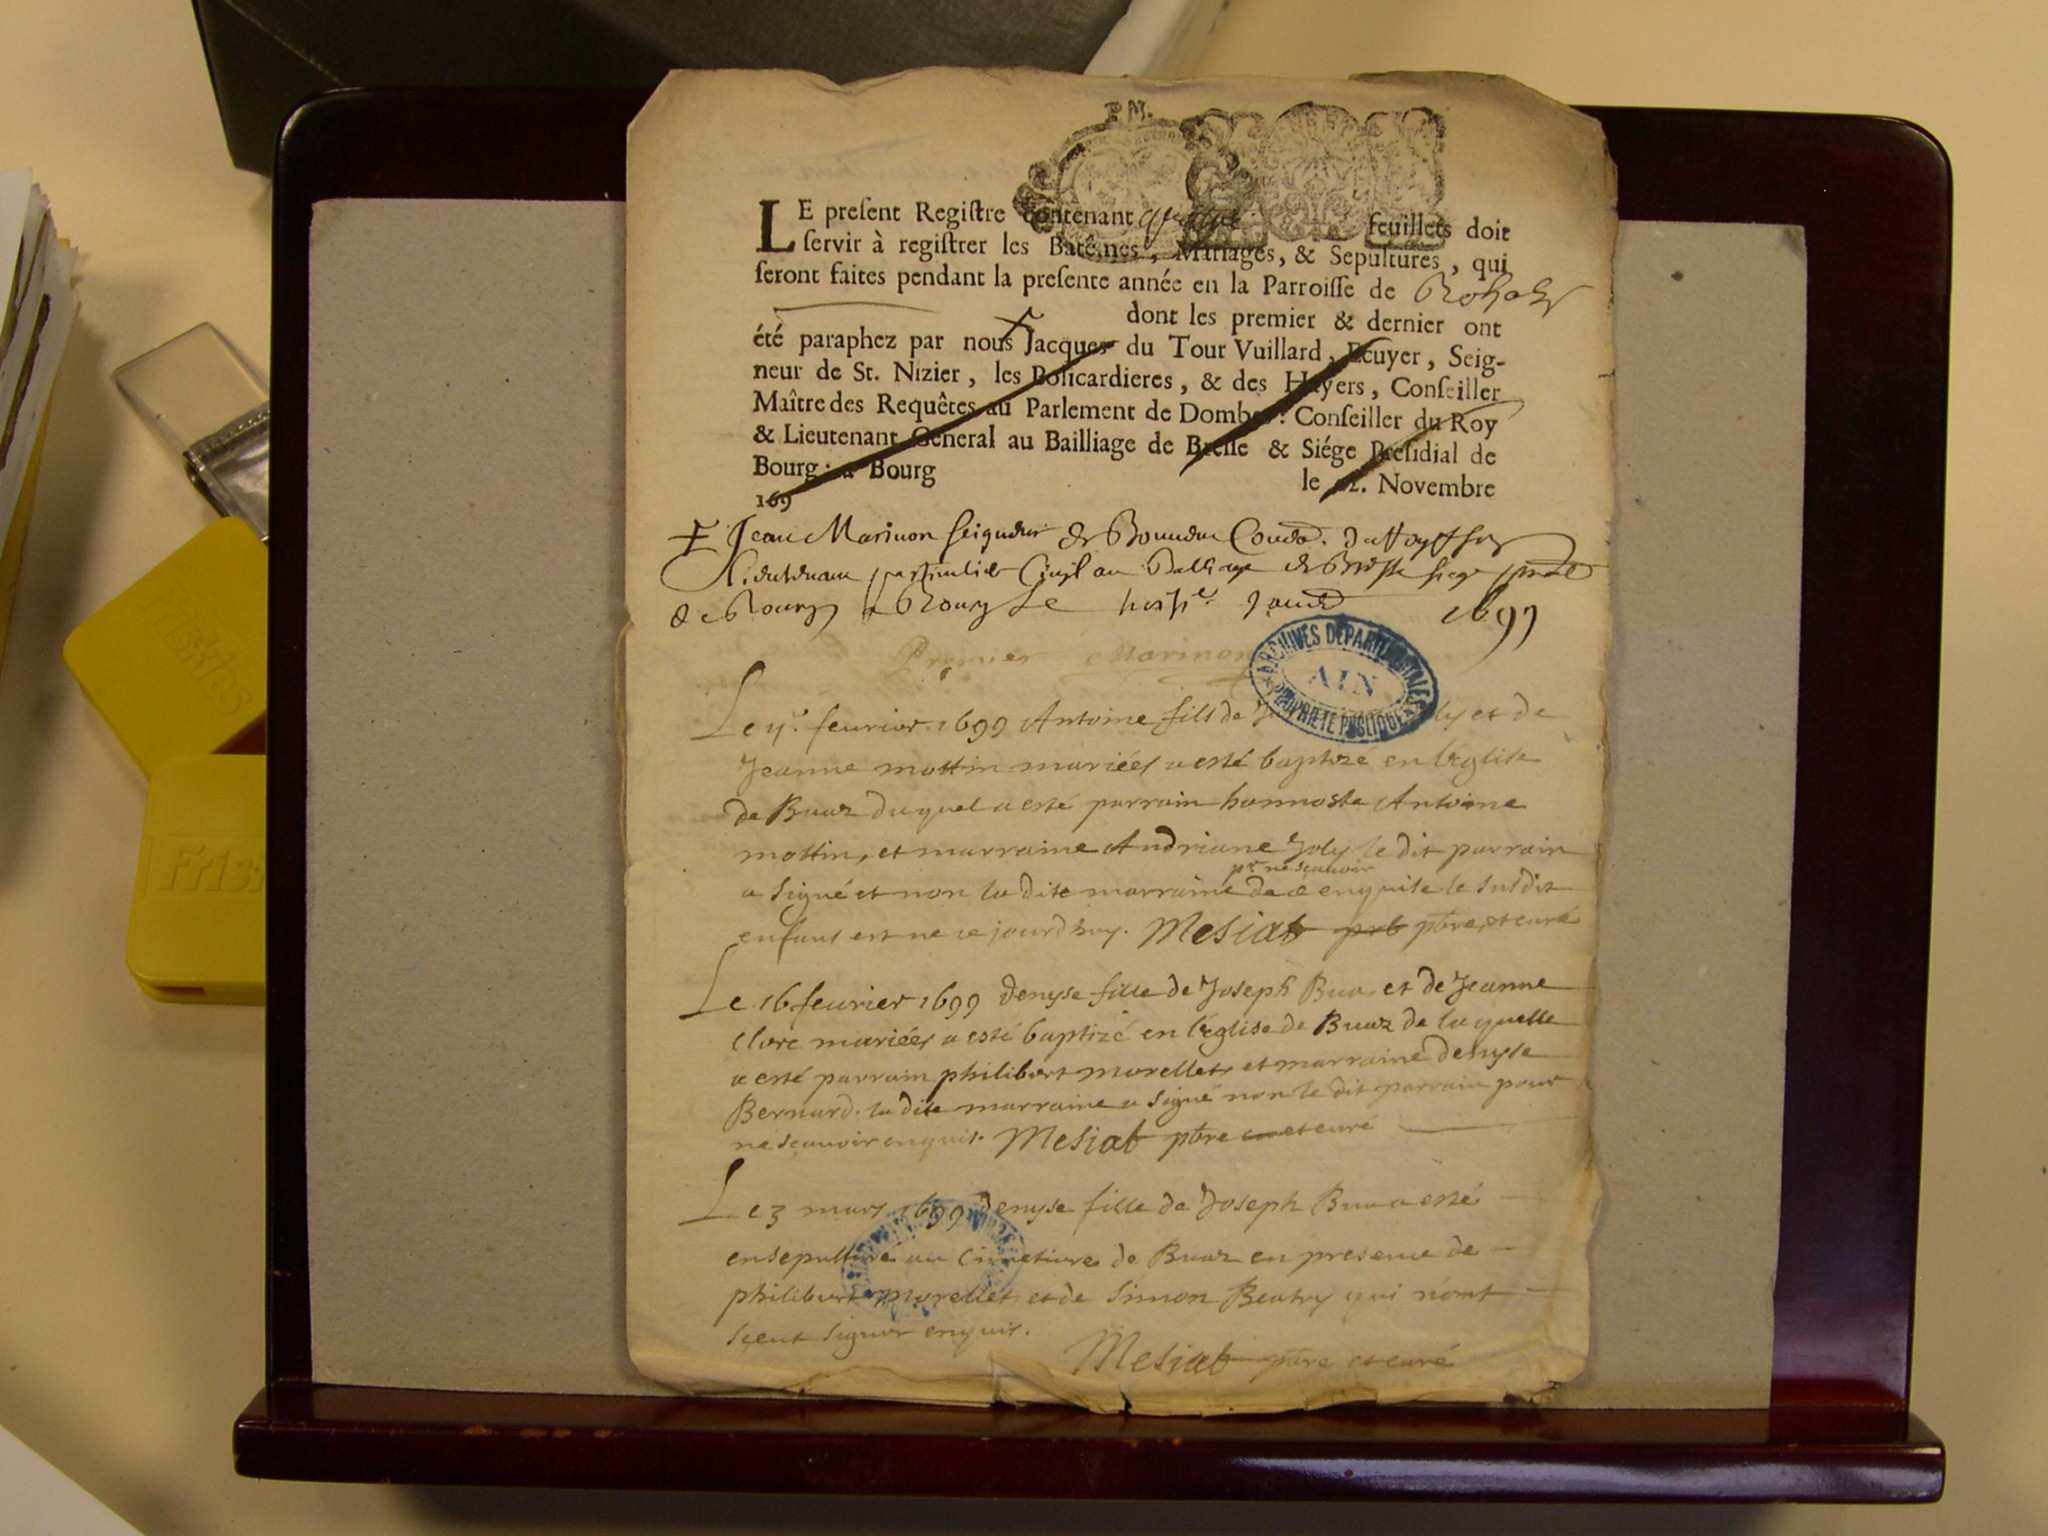 P. M.
LE present Registre contenant feuillets doit
servir à registrer les Batêmes, Mariages, & Sepultures, qui
seront faites pendant la presente année en la Parroisse de
dont les premier & dernier ont
été paraphez par nous Jacques du Tour Vuillard, Ecuyer, Seig-
neur de St. Nizier, les Bosicardieres, & des Hayers, Conseiller
Maître des Requêtes au Parlement de Dombes: Conseiller du Roy
& Lieutenant General au Bailliage de Bresse & Siége Presidial de
Bourg: à Bourg le 12. Novembre
169
Jean Marinon seigneur de
Lieutenant particulier Civil au de Bresse siege
de Bourg a Bourg Le 1699
Premier Marinon
ARCHIVES DÉPARTEMENTALES
AIN
PROPRIÉTÉ PUBLIQUE
Le fevrier 1699 Antoine fils de et de
Jeanne mottin mariées a esté baptize en l'église
de Buaz duquel a esté parrain honneste Antoine
mottin, et marraine Andriane Joly le dit parrain
pr ne sçavoir
a signé et non la dite marraine de ce enquise le susdit
enfant est né ce jourdhuy. Mesiat prb pbre et curé
Le 16 fevrier 1699 denyse fille de Joseph Bua et de Jeanne
Clerc mariées a esté baptizé en l'église de Buaz de laquelle
a esté parrain philibert morellet et marraine denyse
Bernard. la dite marraine a signé non le dit parrain pour
ne sçavoir enquis. Mesiat pbre et curé
Le 3 mars 1699 denyse fille de Joseph Bua a esté
ensepulture au Cimetiere de Buaz en presence de
philibert morellet et de Simon Beatry qui n'ont
sçeut signer enquis.
Mesiat pbre et curé
Friskies
Frisk